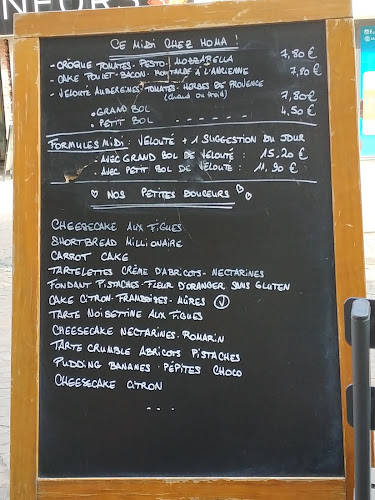 NEURS
CE MIDI CHEZ HOMA !
- CROQUE TOMATES. PESTO. MOZZARELLA 7,80 €
- CAKE POULET-BACON. MOUTARDE À L'ANCIENNE 7,80 €
- VELOUTÉ AUBERGINES. TOMATES. HERBES DE PROVENCE
(chaud ou froid) 7,80 €
. GRAND BOL
. PETIT BOL 4,50 €
FORMULES MIDI : VELOUTÉ + 1 SUGGESTION DU JOUR
- AVEC GRAND BOL DE VELOUTÉ : 15,20 €
- AVEC PETIT BOL DE VELOUTÉ : 11,90 €
♡ NOS PETITES DOUCEURS ♡♡
CHEESECAKE AUX FIGUES
SHORTBREAD MILLIONAIRE
CARROT CAKE
TARTELETTES CRÈME D'ABRICOTS. NECTARINES
FONDANT PISTACHES. FLEUR D'ORANGER SANS GLUTEN
CAKE CITRON. FRAMBOISES. MÛRES (V)
TARTE NOISETTINE AUX FIGUES
CHEESECAKE NECTARINES. ROMARIN
TARTE CRUMBLE ABRICOTS PISTACHES
PUDDING BANANES. PÉPITES CHOCO
CHEESECAKE CITRON
...